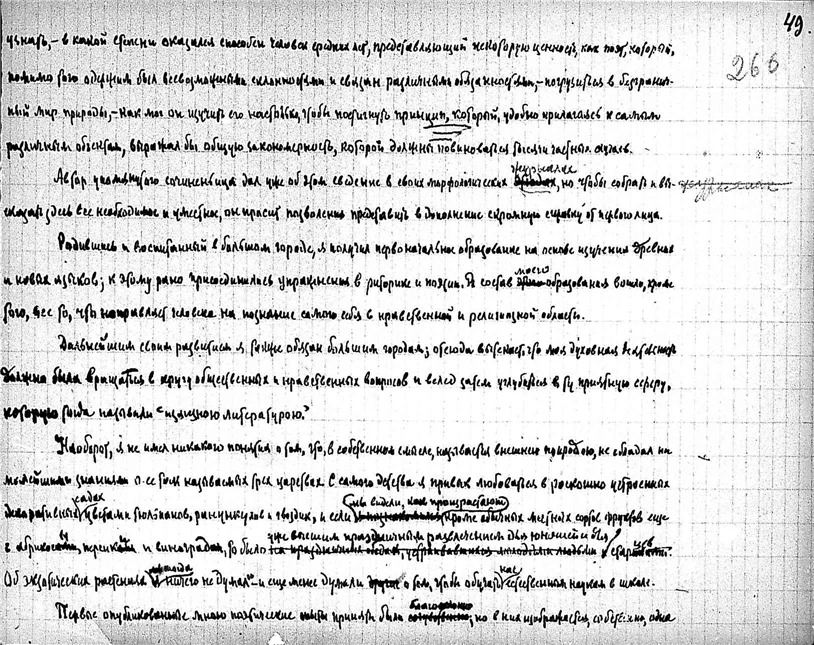 49.
266
узнать, – в какой степени оказался способен человек средних лет, представляющий некоторую ценность, как поэт, который,
помимо того одержим был всевозможными склонностями и связан различными обязанностями, – погрузиться в безгранич-
ный мир природы, – как мог он изучить его настолько, чтобы постигнуть принцип, который, удобно прилагаясь к самым
различным объектам, выражал бы общую закономерность, которой должны повиноваться тысячи частных случаев.
журналах
Автор упомянутого сочиненьица дал уже об этом сведение в своих морфологических , но чтобы собрать и вы-
сказать здесь все необходимое и уместное, он просит позволения представить в дополнение скромную справку от первого лица.
Родившись и воспитанный в большом городе, я получил первоначальное образование на основе изучения древних
моего
и новых языков; к этому рано присоединились упражнения в риторике и поэзии. В состав образования вошло, кроме
того, все то, что направляет человека на познание самого себя в нравственной и религиозной области.
Дальнейшим своим развитием я также обязан большим городам; отсюда вытекает, что моя духовная деятельность
должна была вращаться в кругу общественных и нравственных вопросов и вслед затем углубиться в ту приятную сферу,
которую тогда называли "изящною литературою."
Наоборот, я не имел никакого понятия о том, что, в собственном смысле, называется внешнею природою, не обладал ни
малейшими знаниями о ее так называемых трех царствах. С самого детства я привык любоваться в роскошно устроенных
садах мы видели, как произрастают
декоративных цветами тюльпанов, ранункулов и гвоздик, и если кроме обычных местных сортов фруктов еще
уже высшим праздничным развлечением для юношей и для
и абрикосы, персики и виноград, то было старцев.
никогда нас
Об экзотических растениях не думали – и еще менее думали о том, чтобы обучать естественным наукам в школе.
благосклонно
Первые опубликованные мною поэтические приняты были ; но в них изображается, собственно, одна